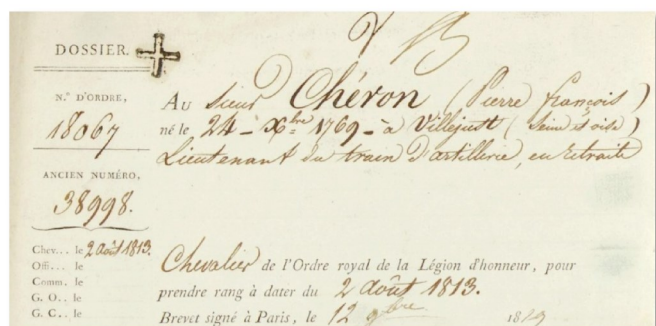 DOSSIER.
N.º D'ORDRE,
18067
ANCIEN NUMÉRO,
38998.
Chev... le 2 août 1813.
Offi... le
Comm. le
G. O.. le
G. C.. le
Au Sieur Chéron (Pierre françois)
né le 24 - Xbre 1769 - à Villejust (Seine et oise)
Lieutenant du train d'artillerie, en retraite
Chevalier de l'Ordre royal de la Légion d'honneur, pour
prendre rang à dater du 2 août 1813.
Brevet signé à Paris, le 12 9bre 1819